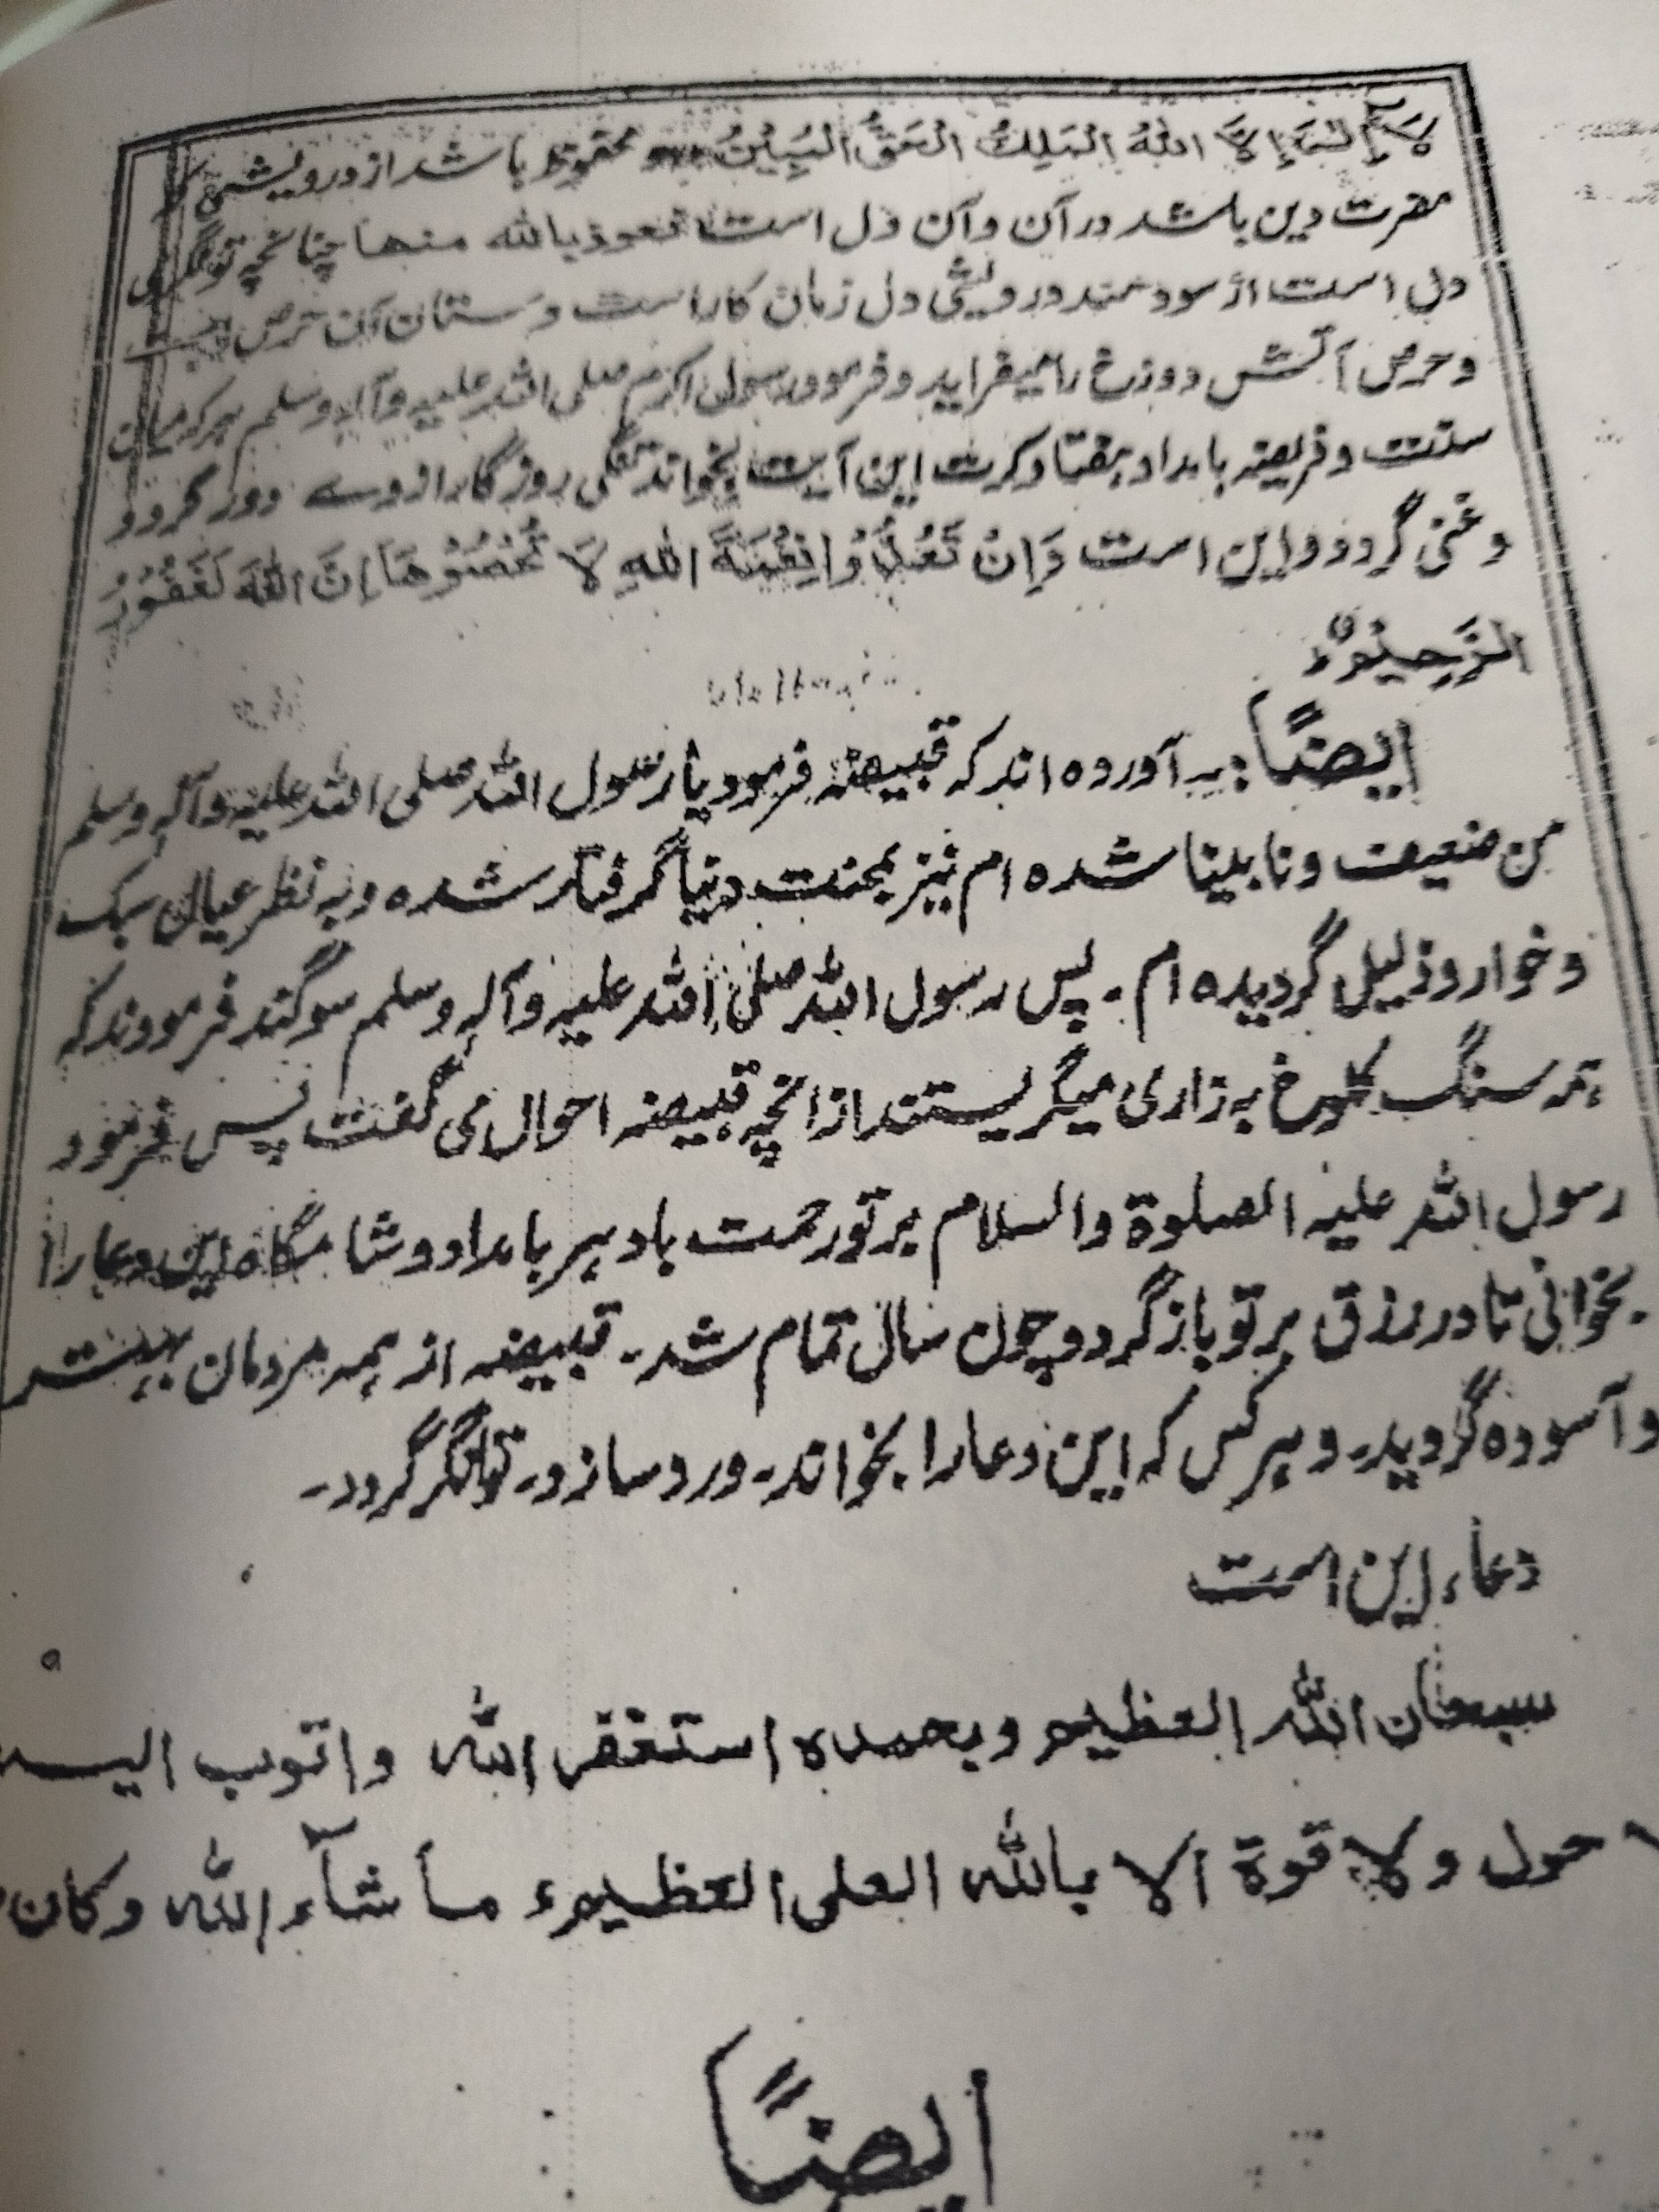 لَا إِلٰهَ إِلَّا اللهُ الْمَلِكُ الْحَقُّ الْمُبِيْنُ محفوظ باشد از درویشی
مضرت دین باشد در آن وآن دل است نعوذ بالله منها چنانچہ توانگری
دل است از سودمند درویشی دل زیان کار است و ستان آن حرص
و حرص آتش دوزخ را میفزاید و فرمود رسول اکرم صلی اللہ علیہ وآلہ وسلم ہر کہ میان
سنت و فریضہ بامداد ہفتاد کرت این آیت بخواند تنگی روزگار از وے دور گردد
و غنی گردد واین است وَاِنْ تَعُدُّوْا نِعْمَةَ اللهِ لَا تُحْصُوْهَا اِنَّ اللهَ لَغَفُوْرُ
الرَّحِيْمٌ
ایضًا : بہ آوردہ اند کہ قبیصہ فرمود یا رسول اللہ صلی اللہ علیہ وآلہ وسلم
من ضعیف و نابینا شدہ ام نیز بمحنت دنیا گرفتار شدہ و بہ نظر عیال سبک
و خوار و ذلیل گردیدہ ام ۔ پس رسول اللہ صلی اللہ علیہ وآلہ وسلم سوگند فرمودند کہ
ہمہ سنگ کلوخ بہ زاری میگریستند از انچہ قبیصہ احوال می گفت پس فرمود
رسول اللہ علیہ الصلوة والسلام بر تو رحمت باد ہر بامداد و شامگاہ این دعا را
بخوانی تا در رزق بر تو باز گردد چون سال تمام شد۔ قبیصہ از ہمہ مردمان بہتر
و آسودہ گردید۔ و ہر کس کہ این دعا را بخواند۔ ورد سازد۔ توانگر گردد۔
دعاء این است
سبحان اللہ العظیم وبحمدہ استغفر اللہ واتوب الیہ
لا حول ولا قوة الا باللہ العلی العظیم ء ماشآء اللہ وکان
ایضًا